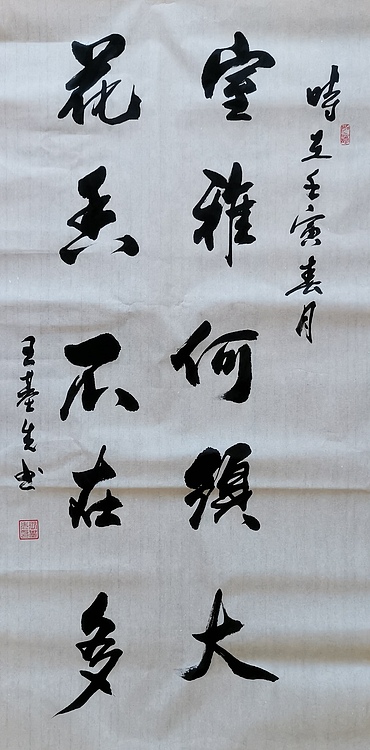 時在壬寅春月
室雅何須大
花香不在多
王基生书